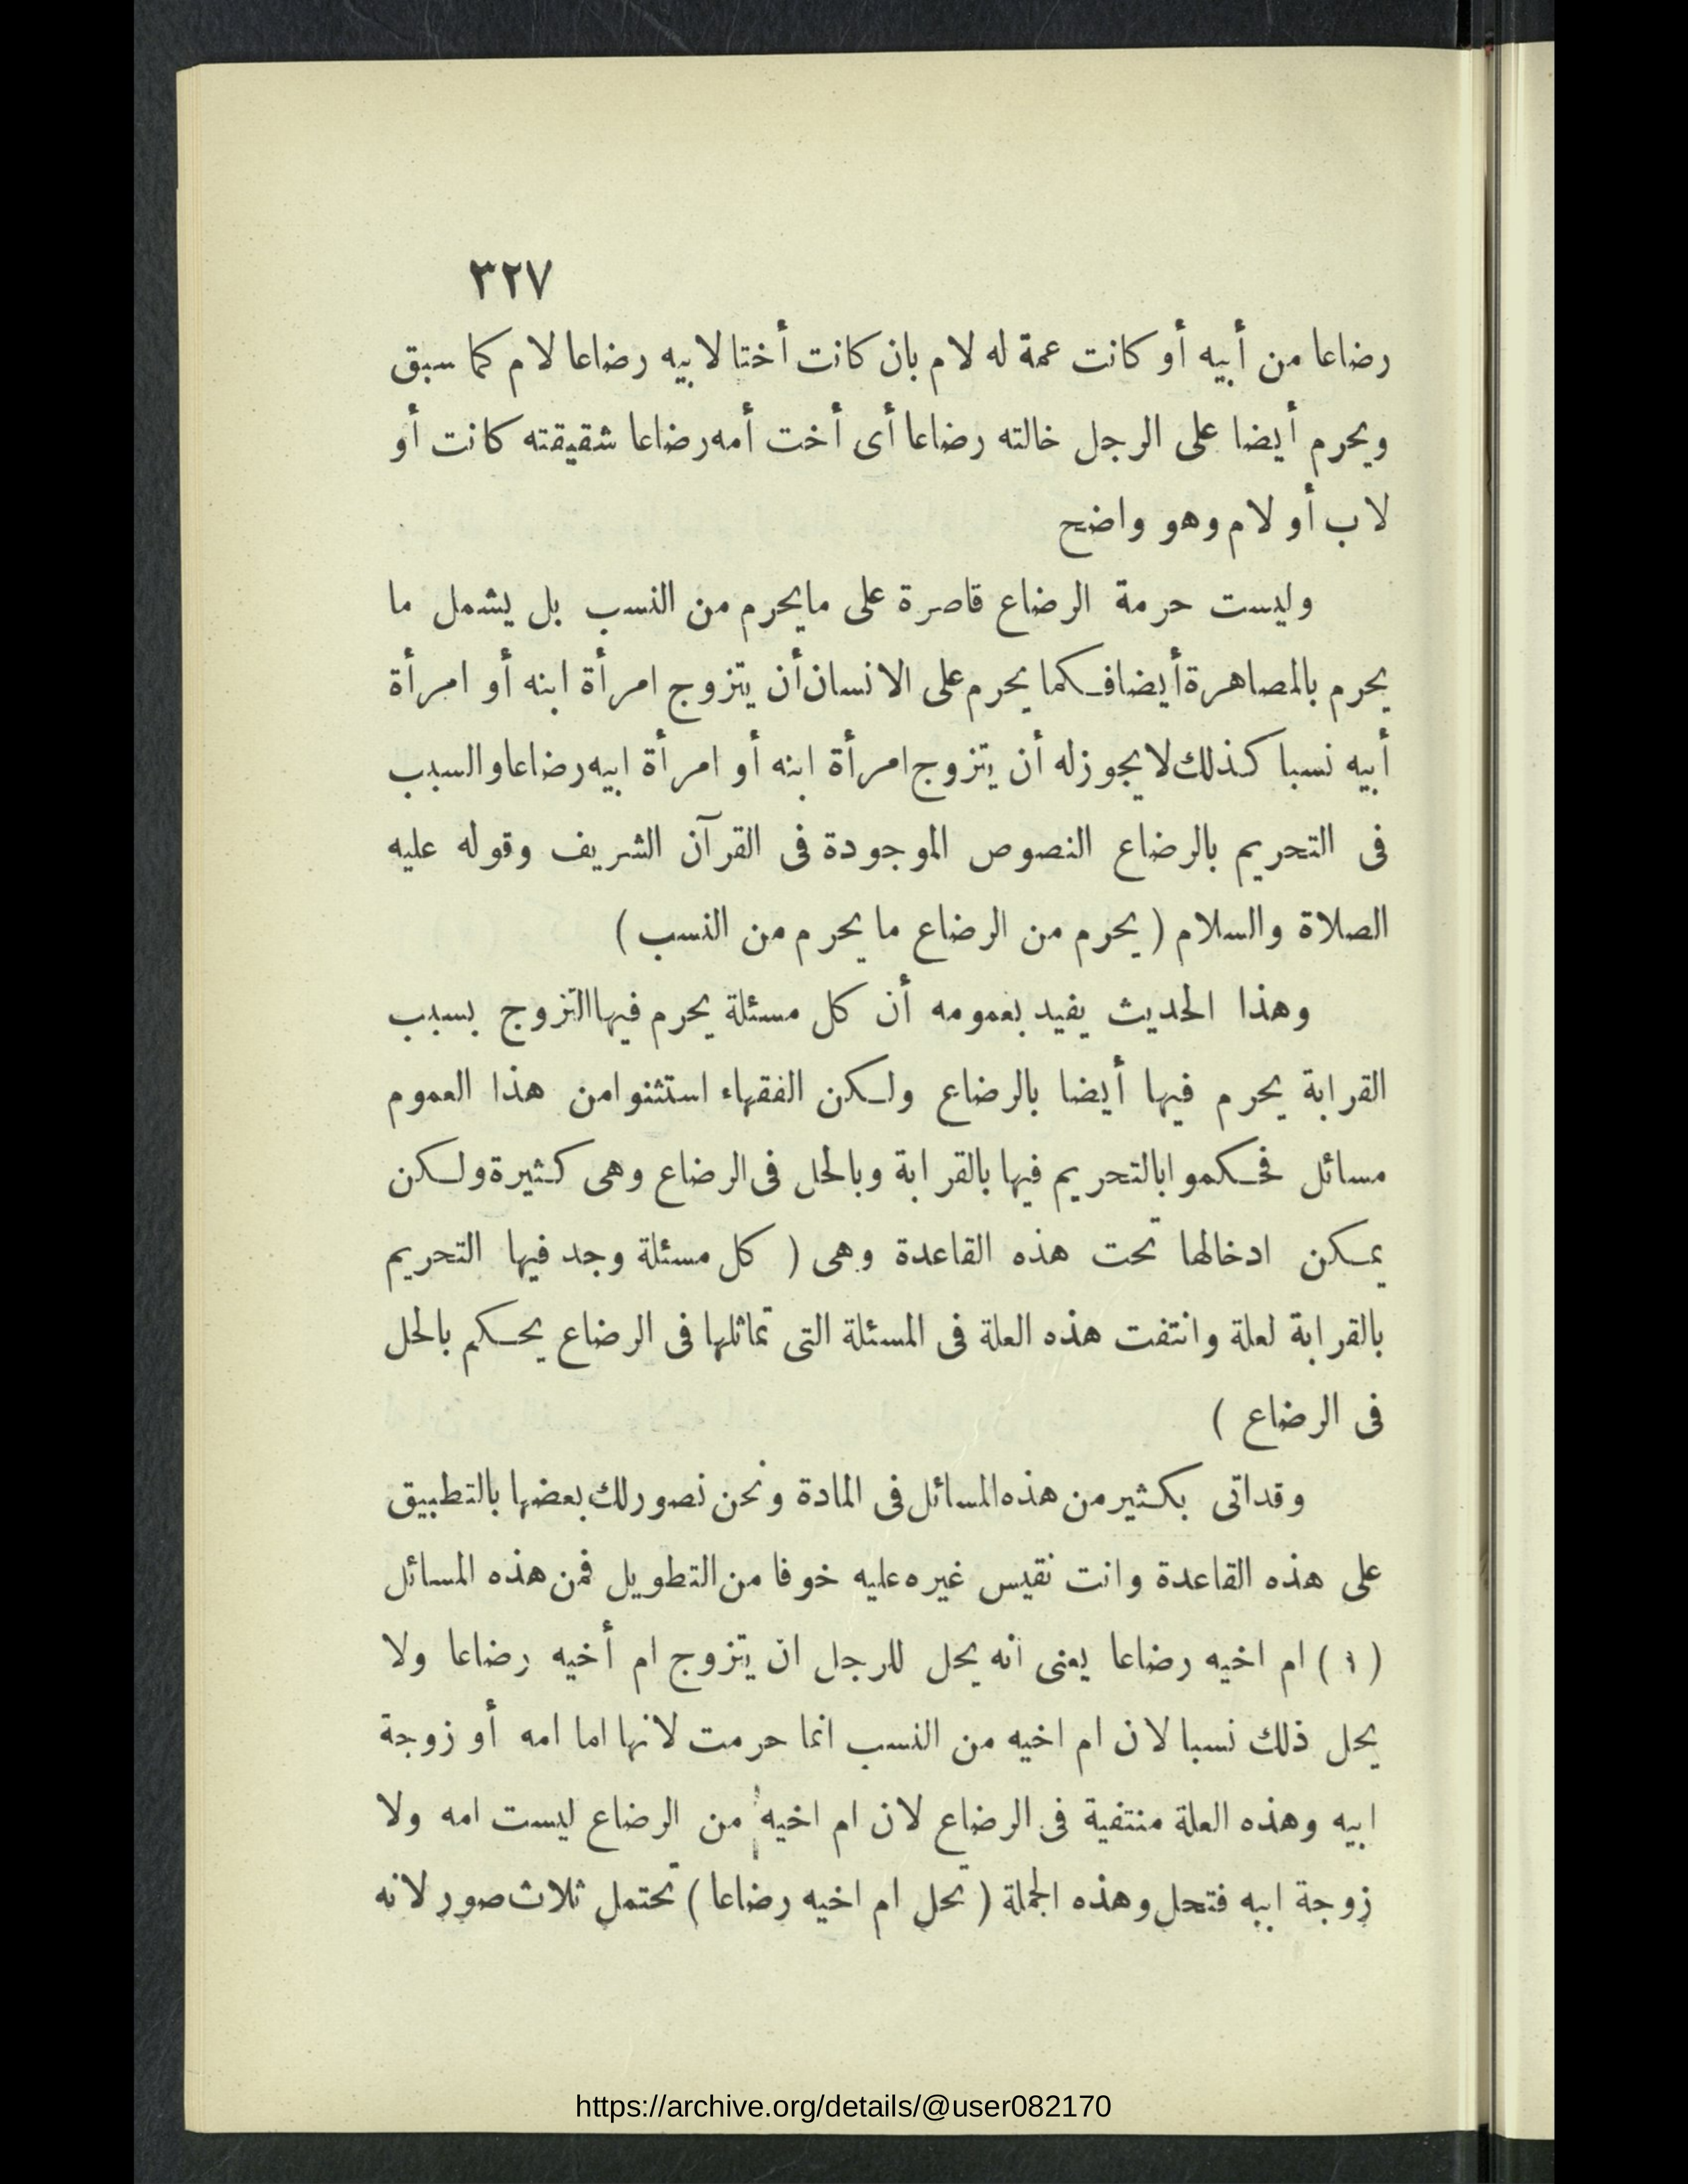 ٣٢٧
رضاعا من أبيه أو كانت عمة له لام بان كانت أختا لابيه رضاعا لام كما سبق
ويحرم أيضا على الرجل خالته رضاعا أى أخت أمه رضاعا شقيقته كانت أو
لاب أو لام وهو واضح
وليست حرمة الرضاع قاصرة على ما يحرم من النسب بل يشمل ما
يحرم بالمصاهرة أيضا فكما يحرم على الانسان أن يتزوج امرأة ابنه أو امرأة
أبيه نسبا كذلك لا يجوز له أن يتزوج امرأة ابنه أو امرأة ابيه رضاعا والسبب
فى التحريم بالرضاع النصوص الموجودة فى القرآن الشريف وقوله عليه
الصلاة والسلام ( يحرم من الرضاع ما يحرم من النسب )
وهذا الحديث يفيد بعمومه أن كل مسئلة يحرم فيها التزوج بسبب
القرابة يحرم فيها أيضا بالرضاع ولكن الفقهاء استثنوا من هذا العموم
مسائل فحكموا بالتحريم فيها بالقرابة وبالحل فى الرضاع وهى كثيرة ولكن
يمكن ادخالها تحت هذه القاعدة وهى ( كل مسئلة وجد فيها التحريم
بالقرابة لعلة وانتفت هذه العلة فى المسئلة التى تماثلها فى الرضاع يحكم بالحل
فى الرضاع )
وقد اتى بكثير من هذه المسائل فى المادة ونحن نصور لك بعضها بالتطبيق
على هذه القاعدة وانت نقيس غيره عليه خوفا من التطويل فمن هذه المسائل
( ١ ) ام اخيه رضاعا يعنى انه يحل للرجل ان يتزوج ام أخيه رضاعا ولا
يحل ذلك نسبا لان ام اخيه من النسب انما حرمت لانها اما امه أو زوجة
ابيه وهذه العلة منتفية فى الرضاع لان ام اخيه من الرضاع ليست امه ولا
زوجة ابيه فتحل وهذه الجملة ( تحل ام اخيه رضاعا ) تحتمل ثلاث صور لانه
https://archive.org/details/@user082170